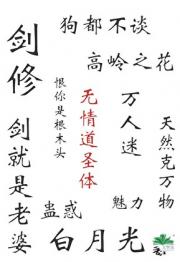 狗都不谈
高岭之花
剑修
恨你是根木头
无情道圣体
万人迷
天然克万物
剑就是老婆
蛊惑
魅力
白月光